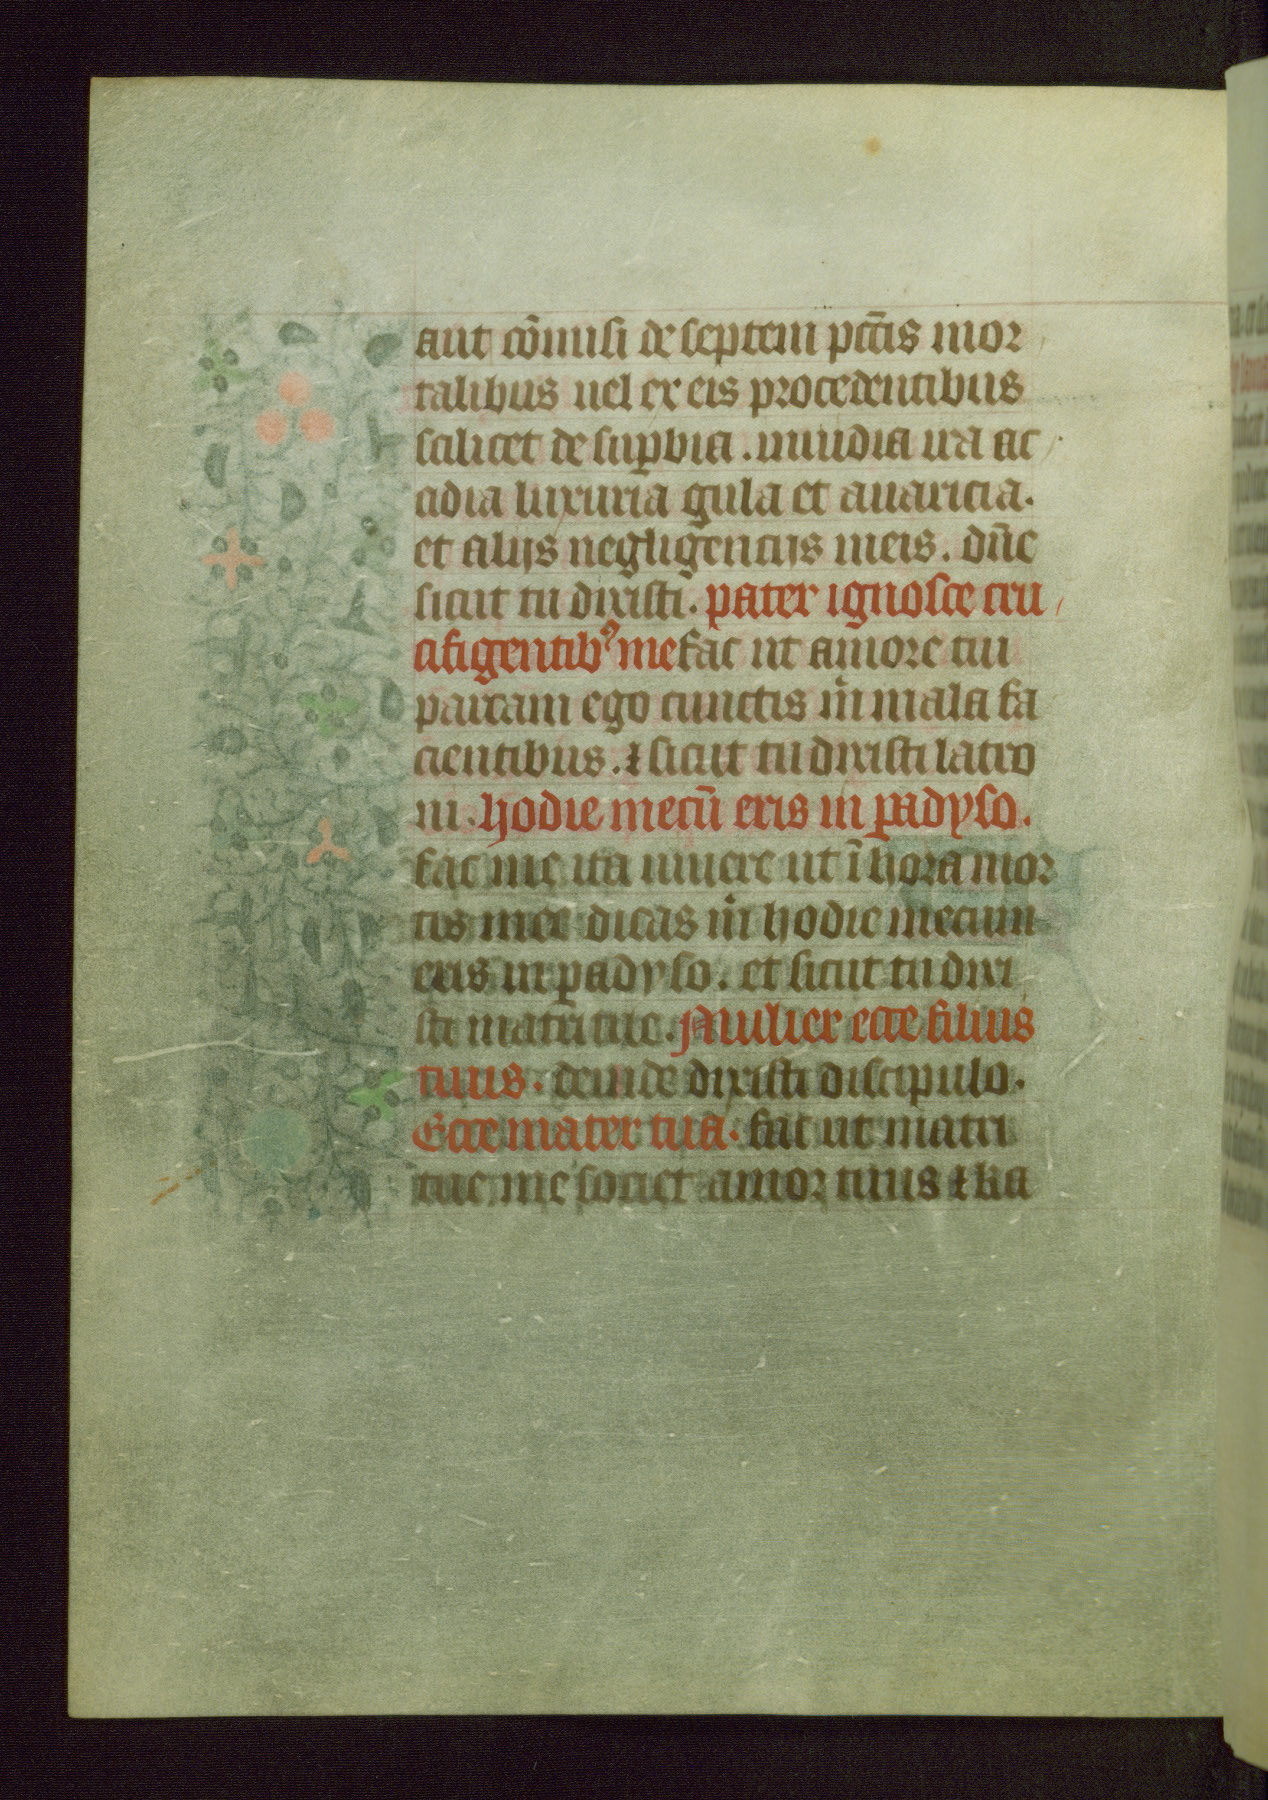 aut cōmisi de septem pctīs mor
talibus uel ex eis procedentibus
scilicet de supbia . inuidia ira ac
cidia luxuria gula et auaricia.
et alijs negligencijs meis. dn̄e
sicut tu dixisti. pater ignosce cru
cifigentibꝰ me fac ut amore tui
parcam ego cunctis m̄ mala fa
cientibus. ⁊ sicut tu dixisti latro
ni. hodie mecū eris in padyso.
fac me ita uiuere ut ī hora mor
tis mee dicas m̄ hodie mecum
eris in padyso. et sicut tu dixi
sti matri tue. Mulier ecce filius
tuus. deinde dixisti discipulo.
Ecce mater tua. fac ut matri
tue me societ amor tuus ⁊ ka